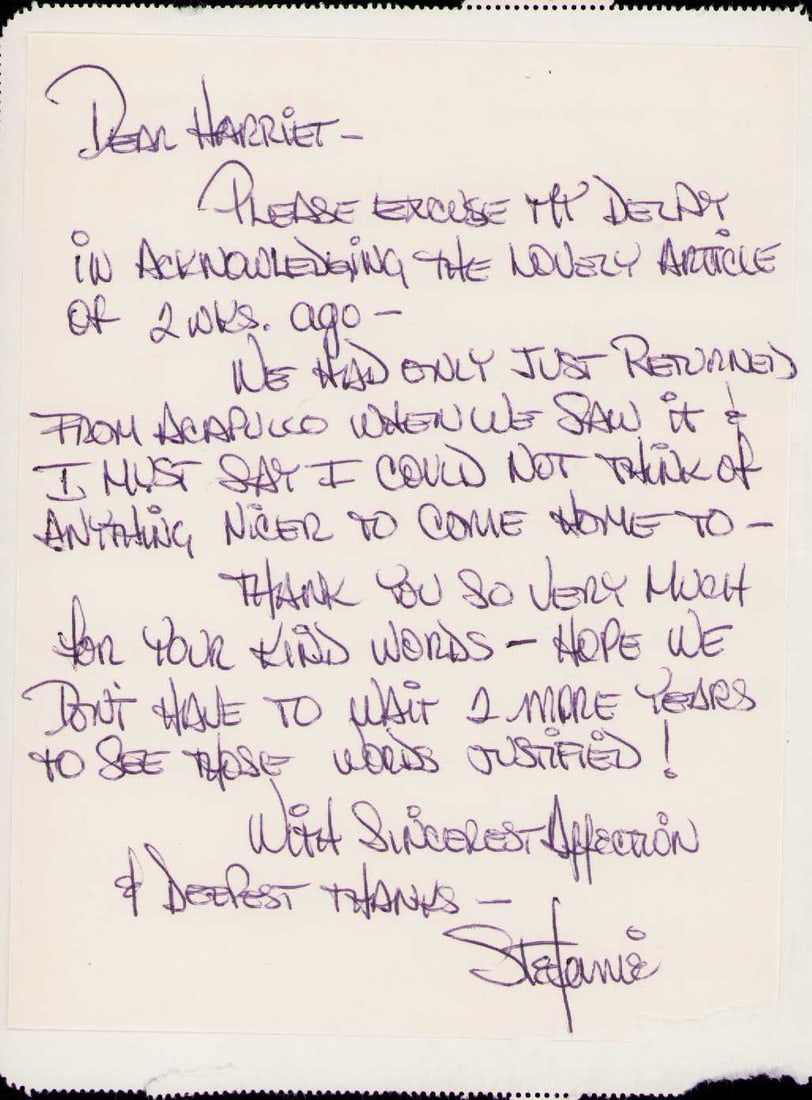 DEAR HARRIET—
PLEASE EXCUSE MY DELAY
IN ACKNOWLEDGING THE LOVELY ARTICLE
OF 2 WKS. ago—
WE HAD ONLY JUST RETURNED
FROM ACAPULCO WHEN WE SAW IT &
I MUST SAY I COULD NOT THINK OF
ANYTHING NICER TO COME HOME TO—
THANK YOU SO VERY MUCH
FOR YOUR KIND WORDS— HOPE WE
DON'T HAVE TO WAIT 2 MORE YEARS
TO SEE THOSE WORDS JUSTIFIED!
WITH SINCEREST AFFECTION
& DEEPEST THANKS—
Stefanie